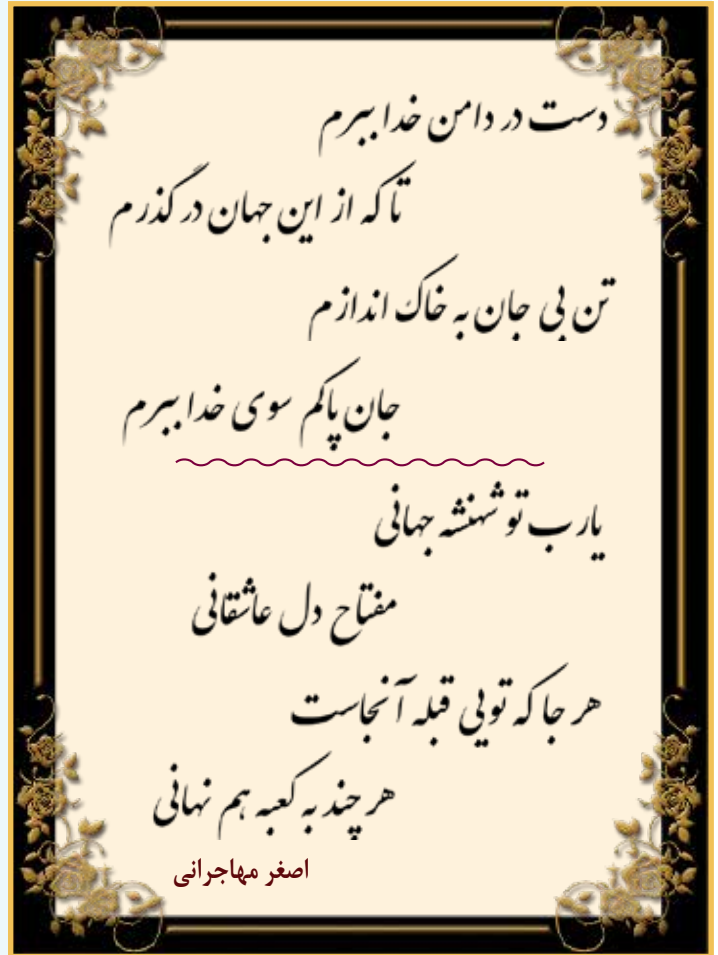 دست در دامن خدا ببرم
تا که از این جهان در گذرم
تن بی جان به خاک اندازم
جان پاکم سوی خدا ببرم
یارب تو شهنشه جهانی
مفتاح دل عاشقانی
هر جا که تویی قبله آنجاست
هر چند به کعبه هم نهانی
اصغر مهاجرانی